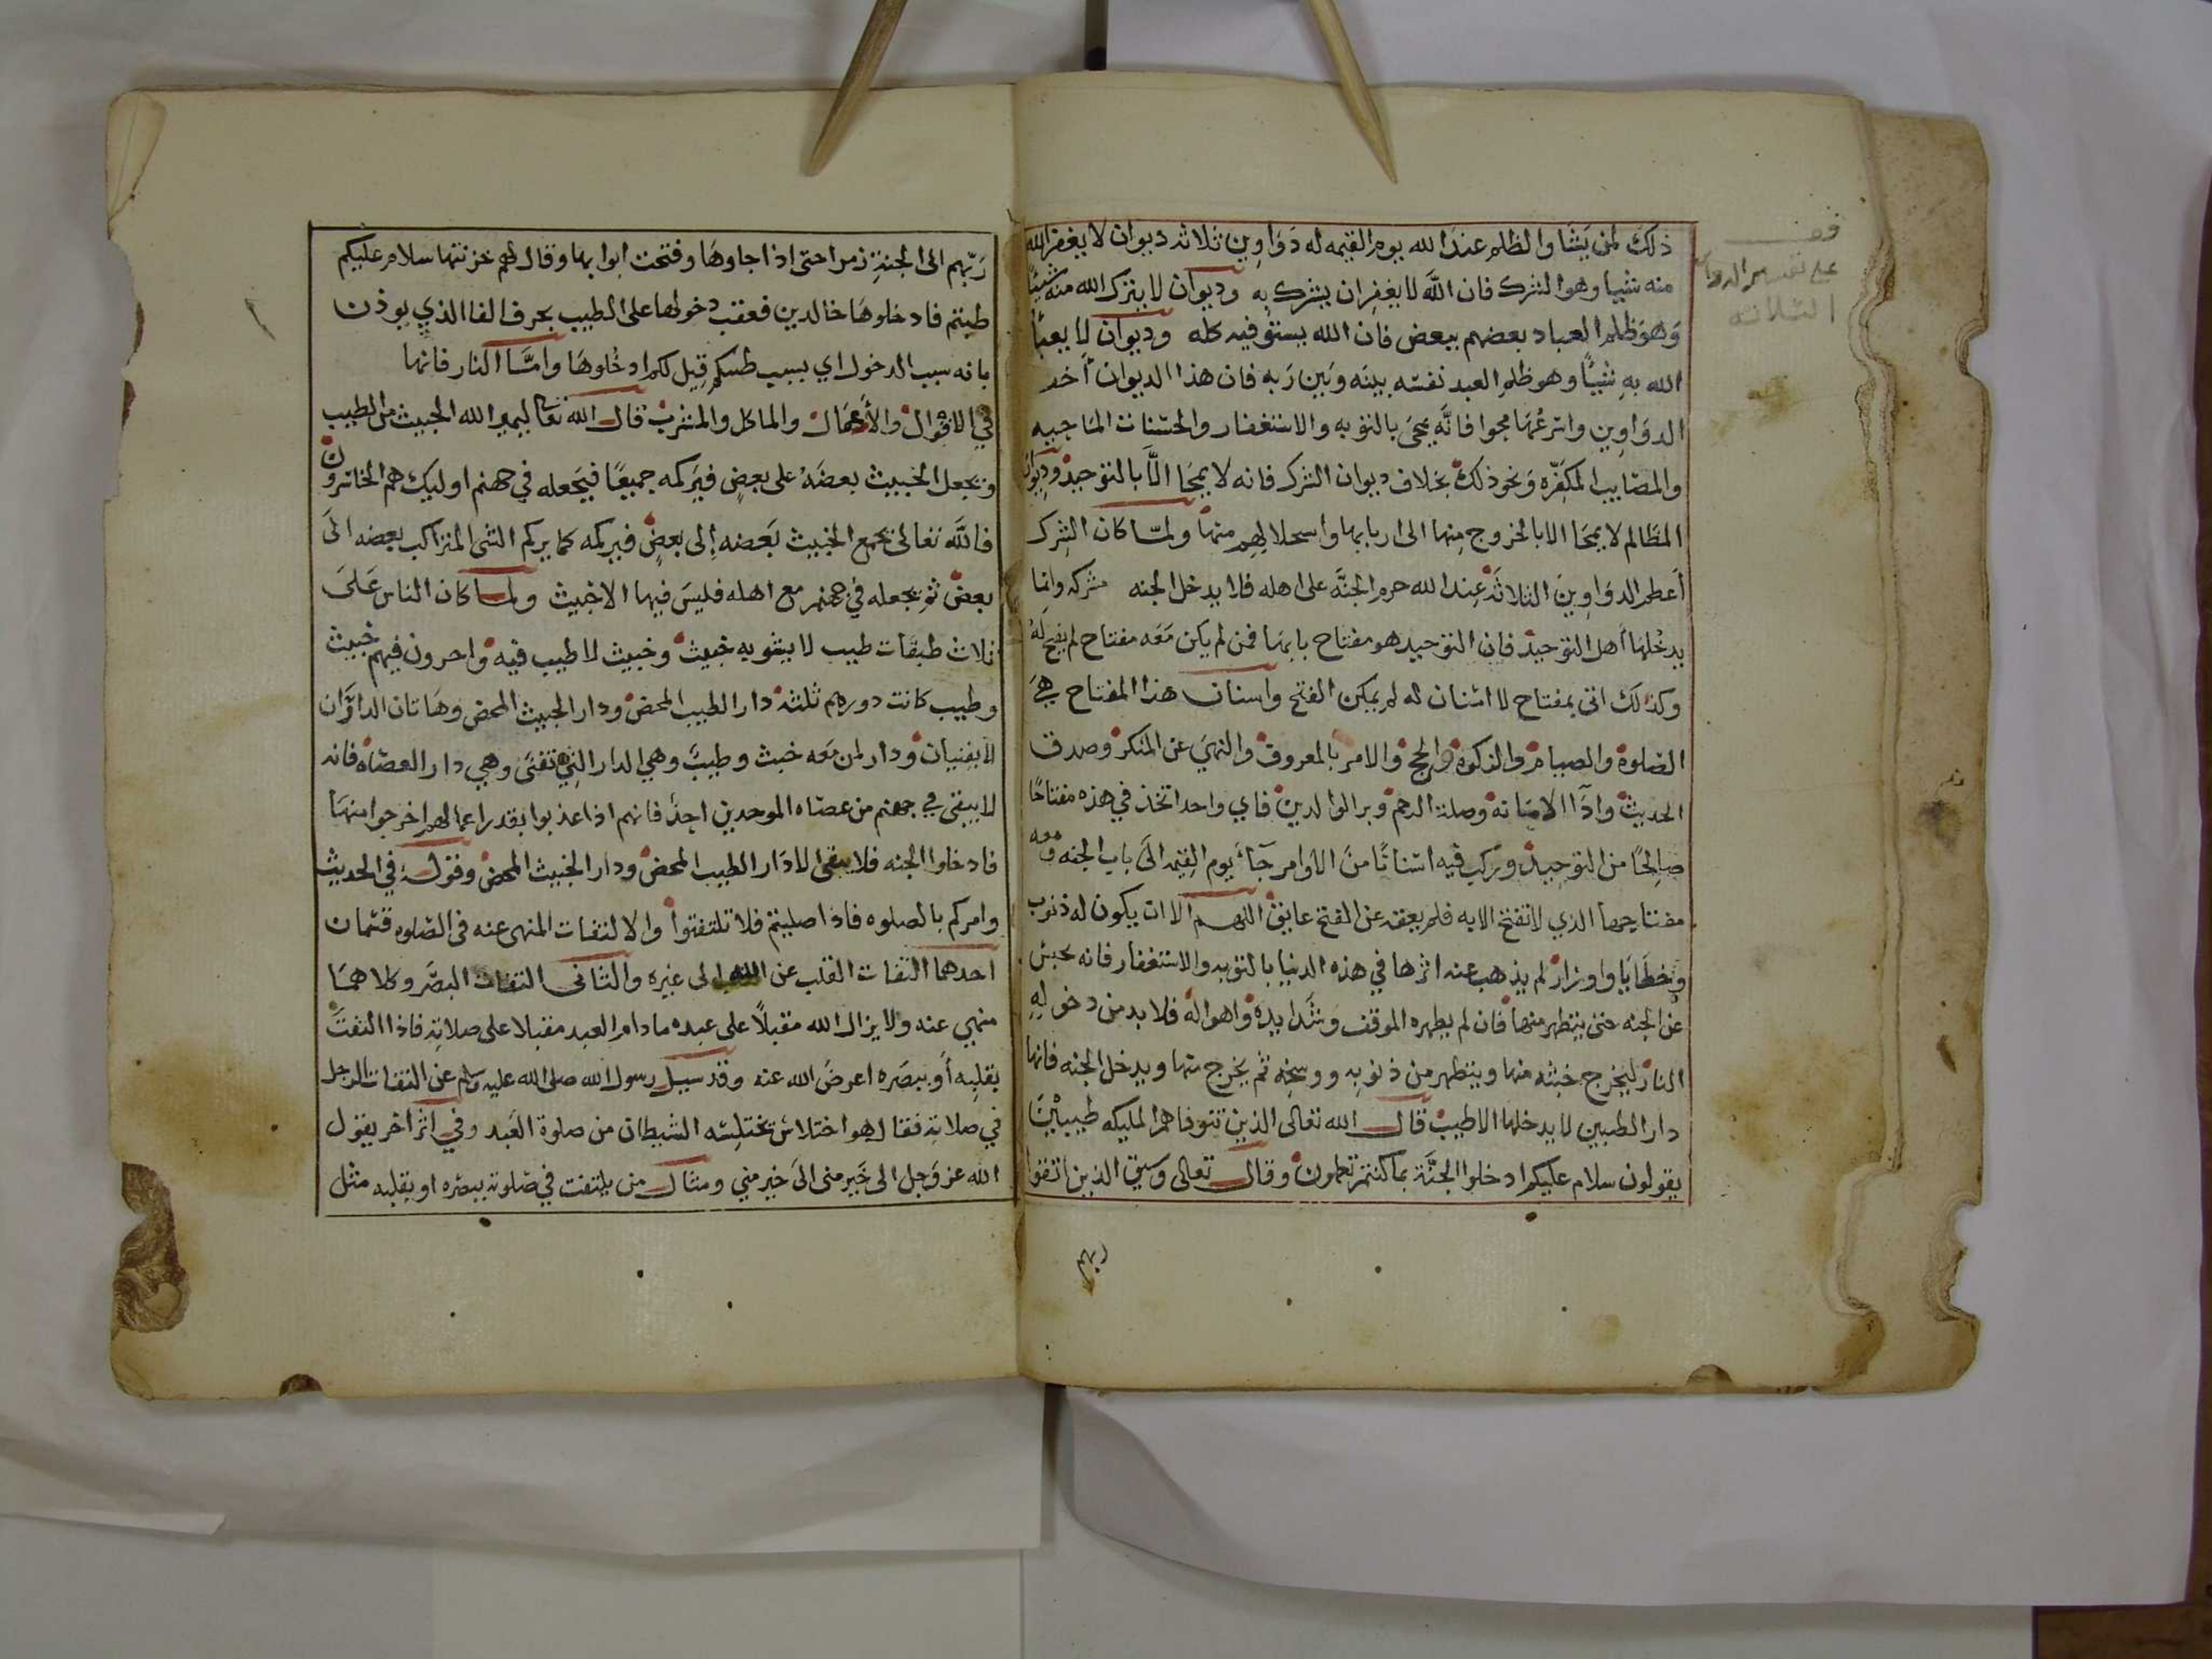 ذلك لمن يشا والظلم عند الله يوم القيمه له دواوين ثلاثه ديوان لا يغفر الله
منه شيا وهو الشرك فان الله لا يغفر ان يشرك به وديوان لا يترك الله منه شيئا
وهو ظلم العباد بعضهم ببعض فان الله يستوفيه كله وديوان لا يعبأ
الله به شيئا وهو ظلم العبد نفسه بينه وبين ربه فان هذا الديوان أخف
الدواوين واسرعها محوا فانه يمحى بالتوبه والاستغفار والحسنات الماحيه
والمصايب المكفره ونحو ذلك بخلاف ديوان الشرك فانه لا يمحا الا بالتوحيد وديوان
المظالم لا يمحا الا بالخروج منها الى اربابها واسحلالهم منها ولما كان الشرك
أعظم الدواوين الثلاثة عند الله حرم الجنة على اهله فلا يدخل الجنه مشركه وانما
يدخلها أهل التوحيد فإن التوحيد هو مفتاح بابها فمن لم يكن معه مفتاح لم يفتح له
وكذلك اتى بمفتاح لا اسنان له لم يمكن الفتح واسنان هذا المفتاح هي
الصلوة والصيام والزكوة والحج والامر بالمعروف والنهي عن المنكر وصدق
الحديث وادآ الامانة وصلة الرحم وبر الوالدين فاي واحد اتخذ في هذه مفتاحا
صالحا من التوحيد وركب فيه اسنانا من الاوامر جآء يوم القيمه الى باب الجنه ومعه
مفتاحها الذي لا تفتح الا به فلم يعقه عن الفتح عايق اللهم الا ان يكون له ذنوب
وخطايا واوزار لم يذهب عنه اثرها في هذه الدنيا بالتوبه والاستغفار فانه يحبس
عن الجنه حتى يتطهر منها فان لم يطهره الموقف وشدايده واهواله فلا بد من دخوله
النار ليخرج خبثه منها ويتطهر من ذنوبه ووسخه ثم يخرج منها ويدخل الجنه فانها
دار الطيبين لا يدخلها الا طيب قال الله تعالى الذين تتوفاهم المليكه طيبين
يقولون سلام عليكم ادخلوا الجنة بما كنتم تعملون وقال تعالى وسيق الذين اتقوا
ربهم
قف
على تقسيم الدواوين
الثلاثه
ربهم الى الجنة زمرا حتى اذا جاوها وفتحت ابوابها وقال لهم خزنتها سلام عليكم
طبتم فادخلوها خالدين فعقب دخولها على الطيب بحرف الفا الذي يوذن
بانه سبب الدخول اي بسبب طيبكم قيل لكم ادخلوها وامّا النار فانها
في الاقوال والأعمال والماكل والمشرب قال الله تعالى ليميز الله الخبيث من الطيب
ويجعل الخبيث بعضه على بعض فيركمه جميعا فيجعله في جهنم اوليك هم الخاسرون
فالله تعالى يجمع الخبيث بعضه إلى بعض فيركمه كما يركم الشى المتراكب بعضه الى
بعض ثم يجعله في جهنم مع اهله فليس فيها الا خبيث ولما كان الناس على
ثلاث طبقات طيب لا يشوبه خبيث وخبيث لا طيب فيه واخرون فيهم خبيث
وطيب كانت دورهم ثلثة دار الطيب المحض ودار الخبيث المحض وهاتان الداران
لا يفنيان ودار لمن معه خبث وطيب وهي الدار التي تفنى وهي دار العصاه فانه
لا يبقى في جهنم من عصاه الموحدين احد فانهم اذا عذبوا بقدر اعمالهم اخرجوا منها
فادخلوا الجنه فلا يبقى الا دار الطيب المحض ودار الخبيث المحض وقوله في الحديث
وامركم بالصلوه فاذا صليتم فلا تلتفتوا والالتفات المنهى عنه فى الصلوه قسمان
احدهما التفات القلب عن الله الى غيره والثانى التفات البصر وكلاهما
منهي عنه ولا يزال الله مقبلا على عبده ما دام العبد مقبلا على صلاته فاذا التفت
بقلبه أو ببصره اعرض الله عنه وقد سيل رسول الله صلى الله عليه وسلم عن التفات الرجل
في صلاته فقال هو اختلاس يختلسه الشيطان من صلوة العبد وفي اثر اخر يقول
الله عز وجل الى خير منى الى خير مني ومثال من يلتفت في صلوته ببصره او بقلبه مثل